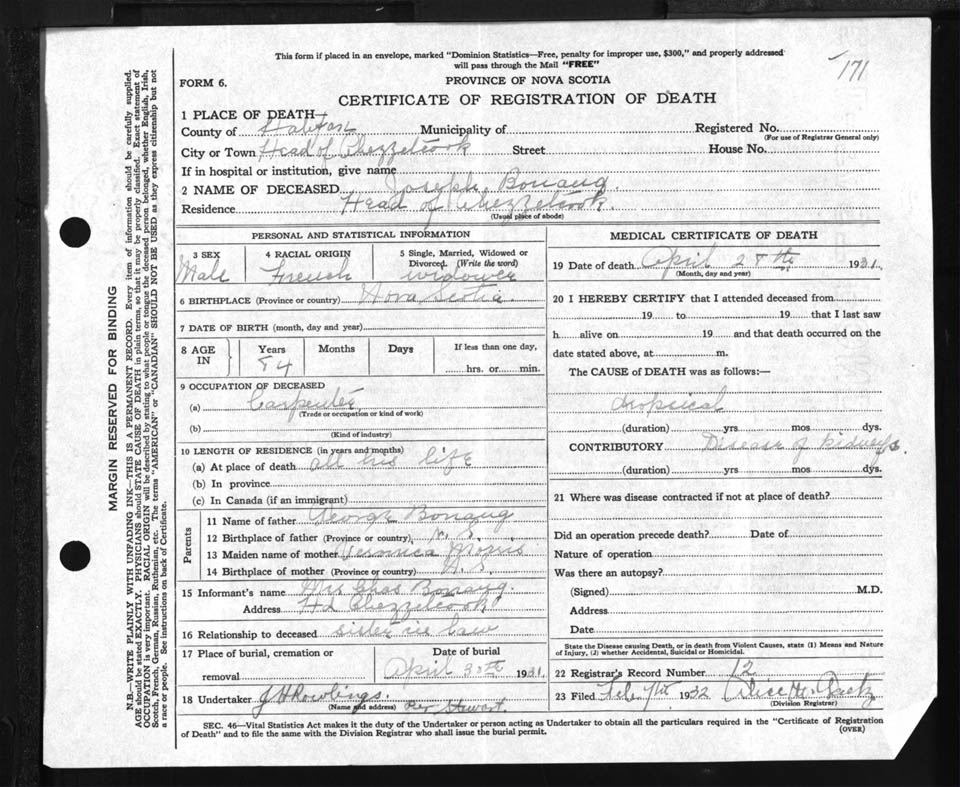 This form if placed in an envelope, marked "Dominion Statistics—Free, penalty for improper use, $300," and properly addressed
will pass through the Mail "FREE"
171
FORM 6.
PROVINCE OF NOVA SCOTIA
CERTIFICATE OF REGISTRATION OF DEATH
1 PLACE OF DEATH—
County of Halifax Municipality of Registered No.
(For use of Registrar General only)
City or Town Head of Chezzetcook Street House No.
If in hospital or institution, give name
2 NAME OF DECEASED Joseph Bonang
Residence Head of Chezzetcook.
(Usual place of abode)
PERSONAL AND STATISTICAL INFORMATION
3 SEX 4 RACIAL ORIGIN 5 Single, Married, Widowed or
Divorced. (Write the word)
Male French widower
6 BIRTHPLACE (Province or country) Nova Scotia.
7 DATE OF BIRTH (month, day and year)
8 AGE IN Years Months Days If less than one day,
84 hrs. or min.
9 OCCUPATION OF DECEASED
(a) Carpenter
(Trade or occupation or kind of work)
(b)
(Kind of industry)
10 LENGTH OF RESIDENCE (in years and months)
(a) At place of death all his life
(b) In province
(c) In Canada (if an immigrant)
Parents
11 Name of father George Bonang
12 Birthplace of father (Province or country) N. S.
13 Maiden name of mother Veronica
14 Birthplace of mother (Province or country) N. S.
15 Informant's name Mrs Chas Bonang.
Address Hd Chezzetcook
16 Relationship to deceased sister in law
17 Place of burial, cremation or Date of burial
removal April 30th 1931.
18 Undertaker J H Rowlings.
(Name and address) Per Stewart.
MEDICAL CERTIFICATE OF DEATH
19 Date of death April 28th 1931.
(Month, day and year)
20 I HEREBY CERTIFY that I attended deceased from
19 to 19 that I last saw
h alive on 19 and that death occurred on the
date stated above, at m.
The CAUSE of DEATH was as follows:—
dropsical
(duration) yrs. mos dys.
CONTRIBUTORY Disease of kidneys
(duration) yrs mos dys.
21 Where was disease contracted if not at place of death?
Did an operation precede death? Date of
Nature of operation
Was there an autopsy?
(Signed) M.D.
Address
Date
State the Disease causing Death, or in death from Violent Causes, state (1) Means and Nature
of Injury, (2) whether Accidental, Suicidal or Homicidal.
22 Registrar's Record Number 12
23 Filed Feb 1932
(Division Registrar)
SEC. 46—Vital Statistics Act makes it the duty of the Undertaker or person acting as Undertaker to obtain all the particulars required in the "Certificate of Registration
of Death" and to file the same with the Division Registrar who shall issue the burial permit.
(OVER)
MARGIN RESERVED FOR BINDING
N.B.—WRITE PLAINLY WITH UNFADING INK—THIS IS A PERMANENT RECORD. Every item of information should be carefully supplied.
AGE should be stated EXACTLY. PHYSICIANS should STATE CAUSE OF DEATH in plain terms, so that it may be properly classified. Exact statement of
OCCUPATION is very important. RACIAL ORIGIN will be described by stating to what people or tongue the deceased person belonged, whether English, Irish,
Scotch, French, German, Russian, Ruthenian, etc. The terms "AMERICAN" or "CANADIAN" SHOULD NOT BE USED as they express citizenship but not
a race or people. See instructions on back of Certificate.